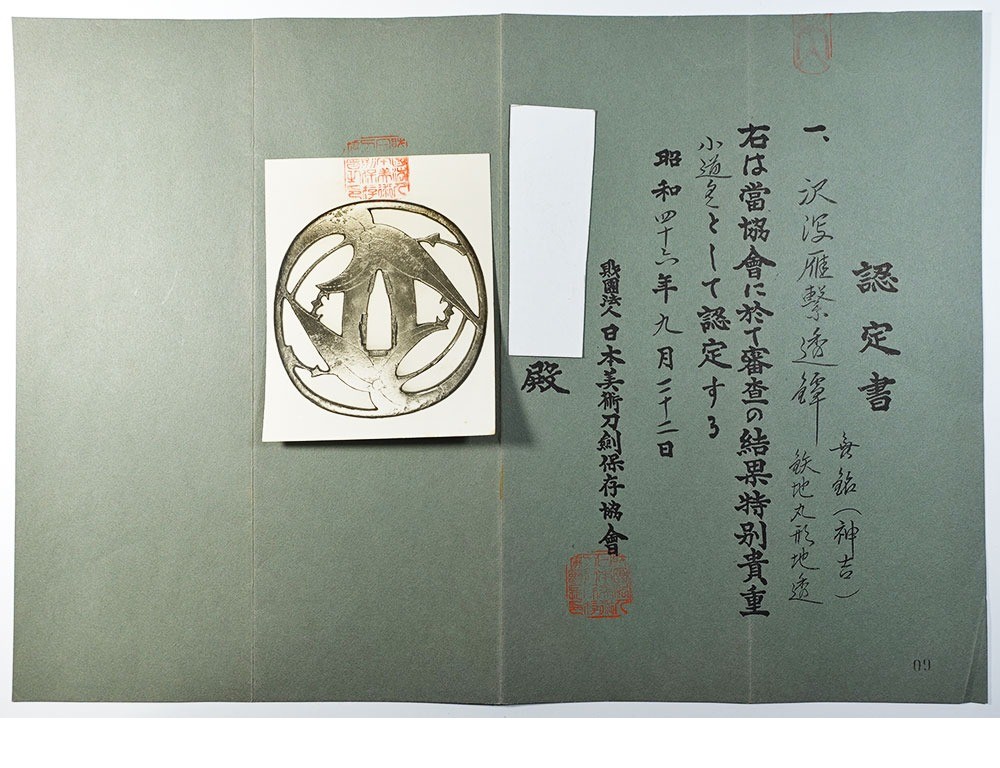 認定書
一、沢瀉雁繋透鐔
無銘(神吉)
鉄地丸形地透
右は當協會に於て審査の結果特別貴重
小道具として認定する
昭和四十六年九月二十二日
財團法人日本美術刀劍保存協會
殿
09